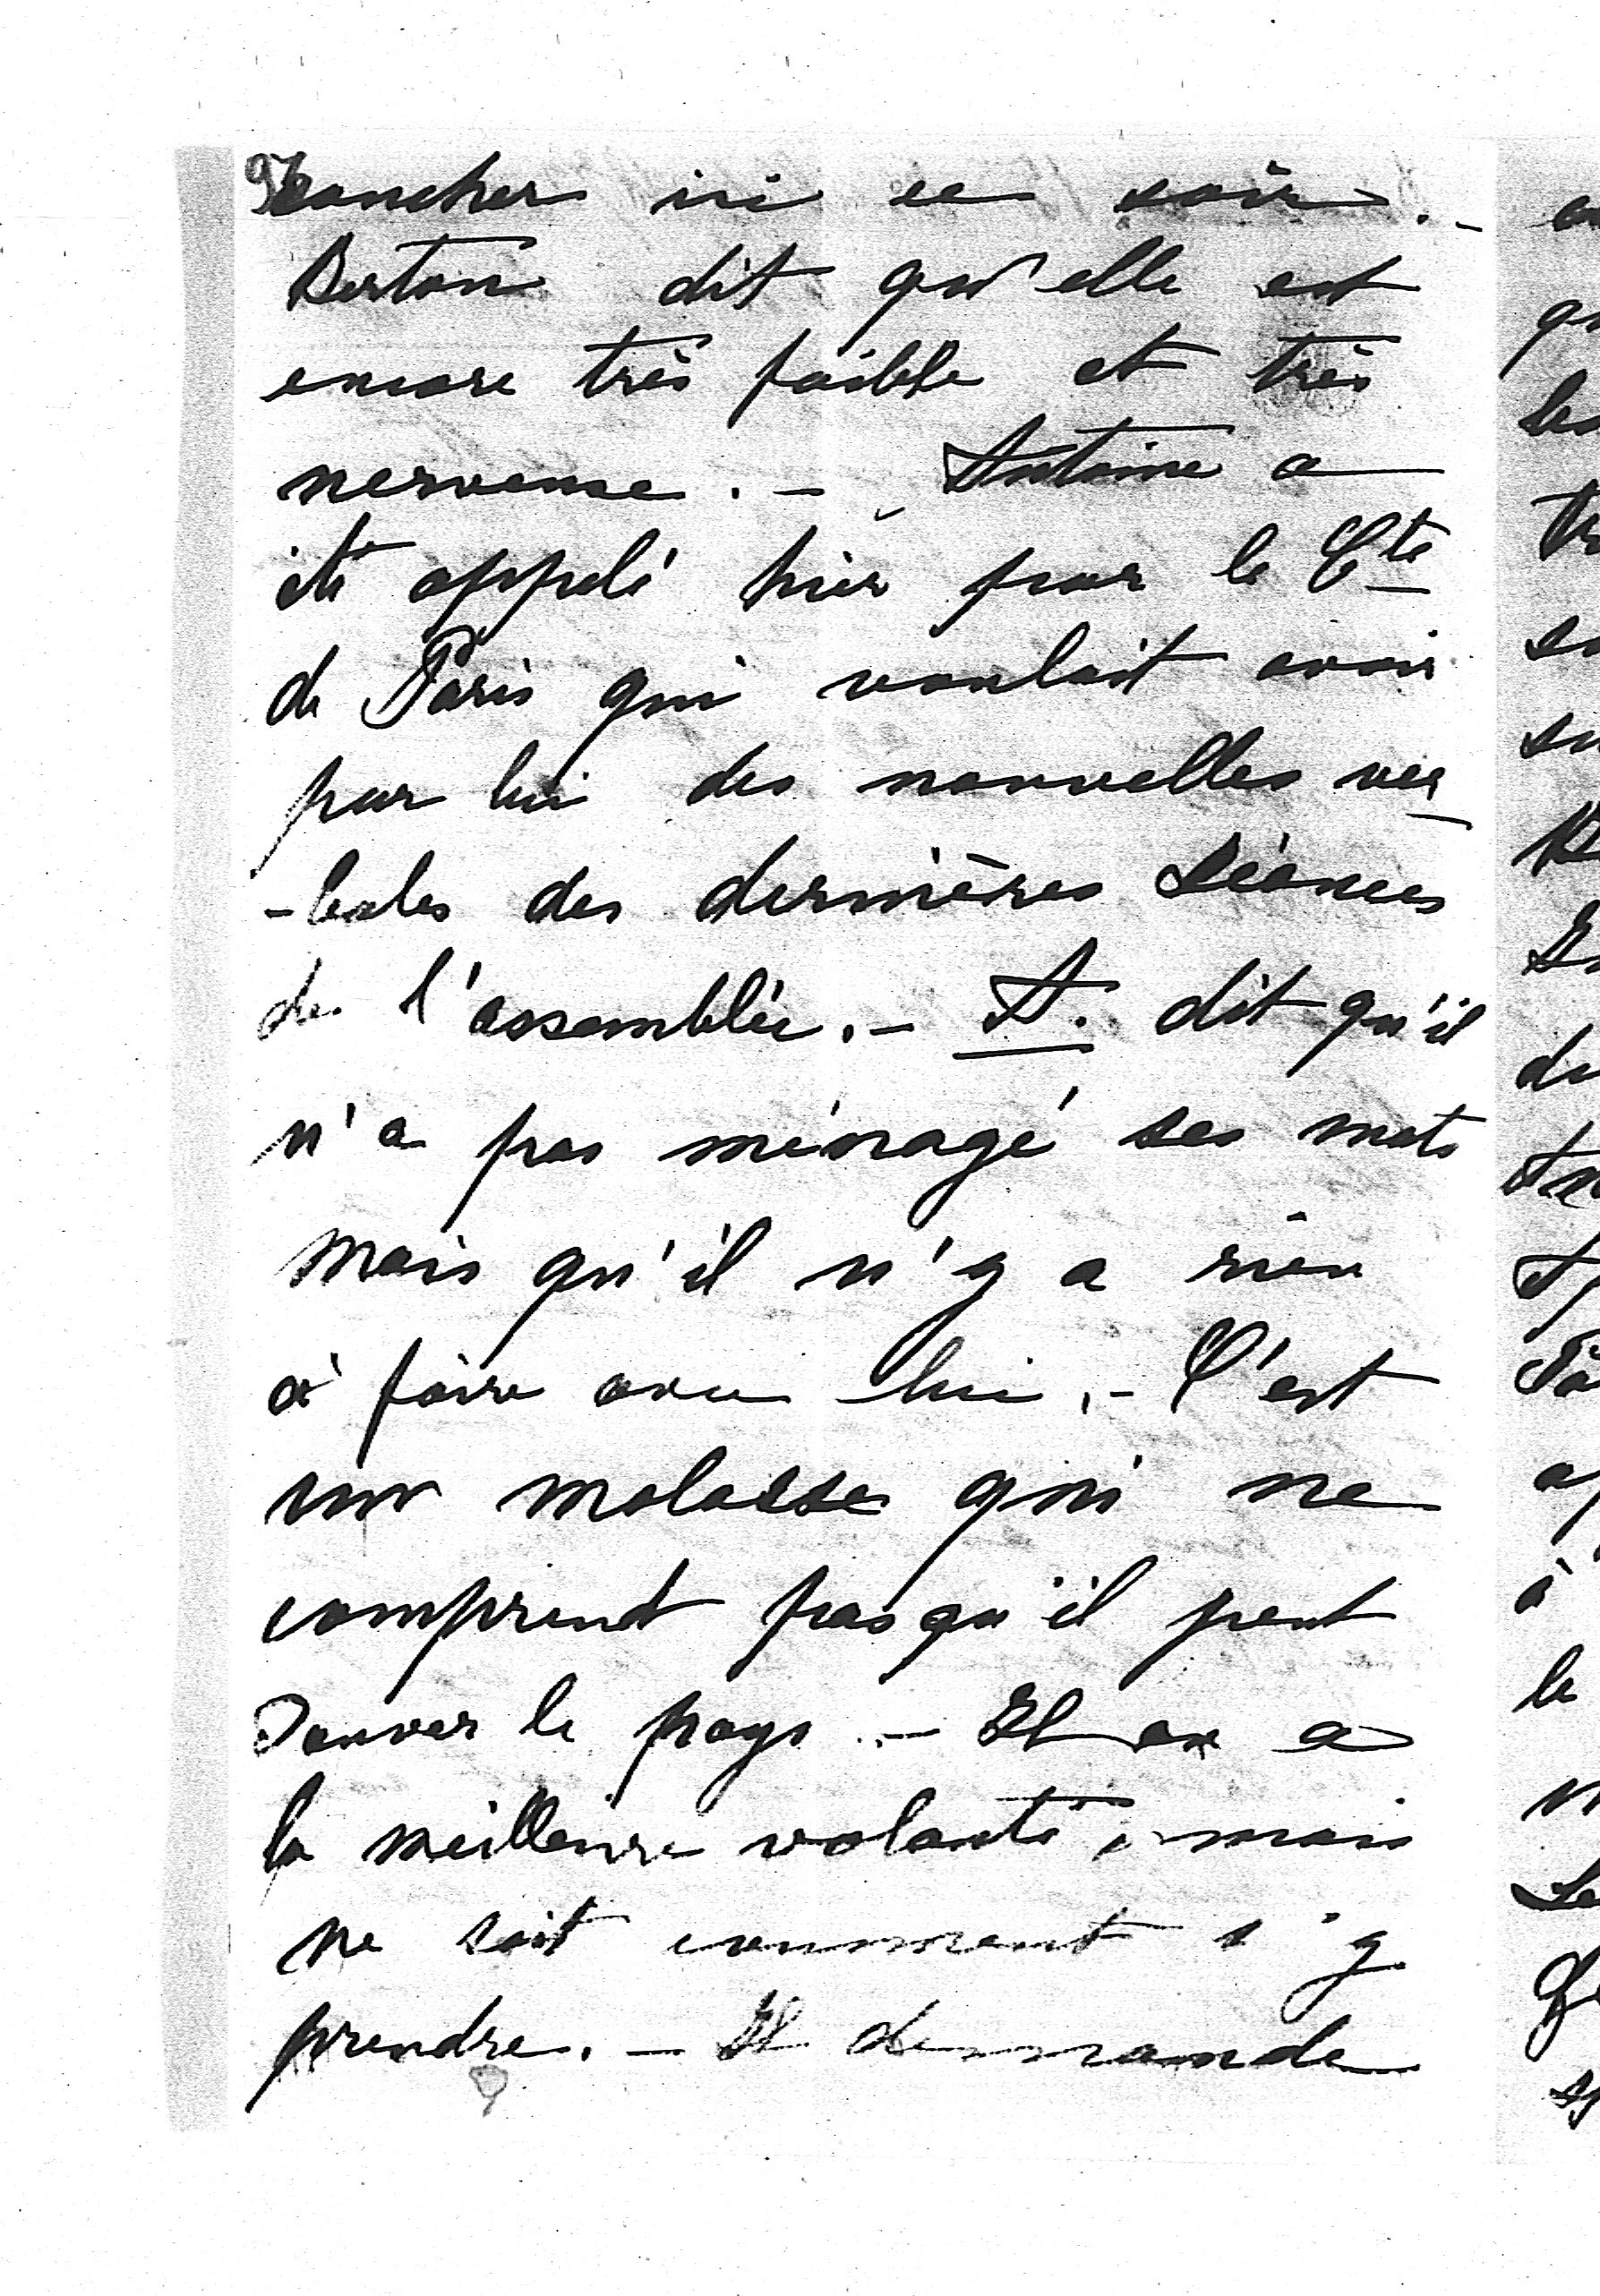 97
coucher ici ce soir. -
Berton dit qu'elle est
encore très faible et très
nerveuse. - Antoine a
été appelé hier par le Cte
de Paris qui voulait avoir
par lui des nouvelles ver
-bales des dernières Séances
de l'assemblée. - A. dit qu'il
n'a pas ménagé ses mots
mais qu'il n'y a rien
à faire avec lui. - C'est
un molasse qui ne
comprend pas qu'il peut
sauver le pays. - Il en a
la meilleure volonté, mais
ne sait comment s'y
prendre. - Il demande